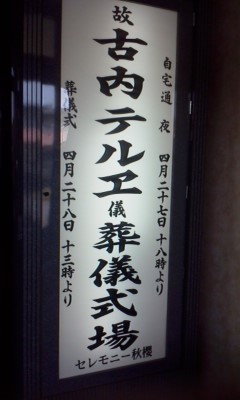 自宅通夜 四月二十七日 十八時より
故 古内テルヱ 儀 葬儀式場
葬儀式 四月二十八日 十三時より
セレモニー秋櫻